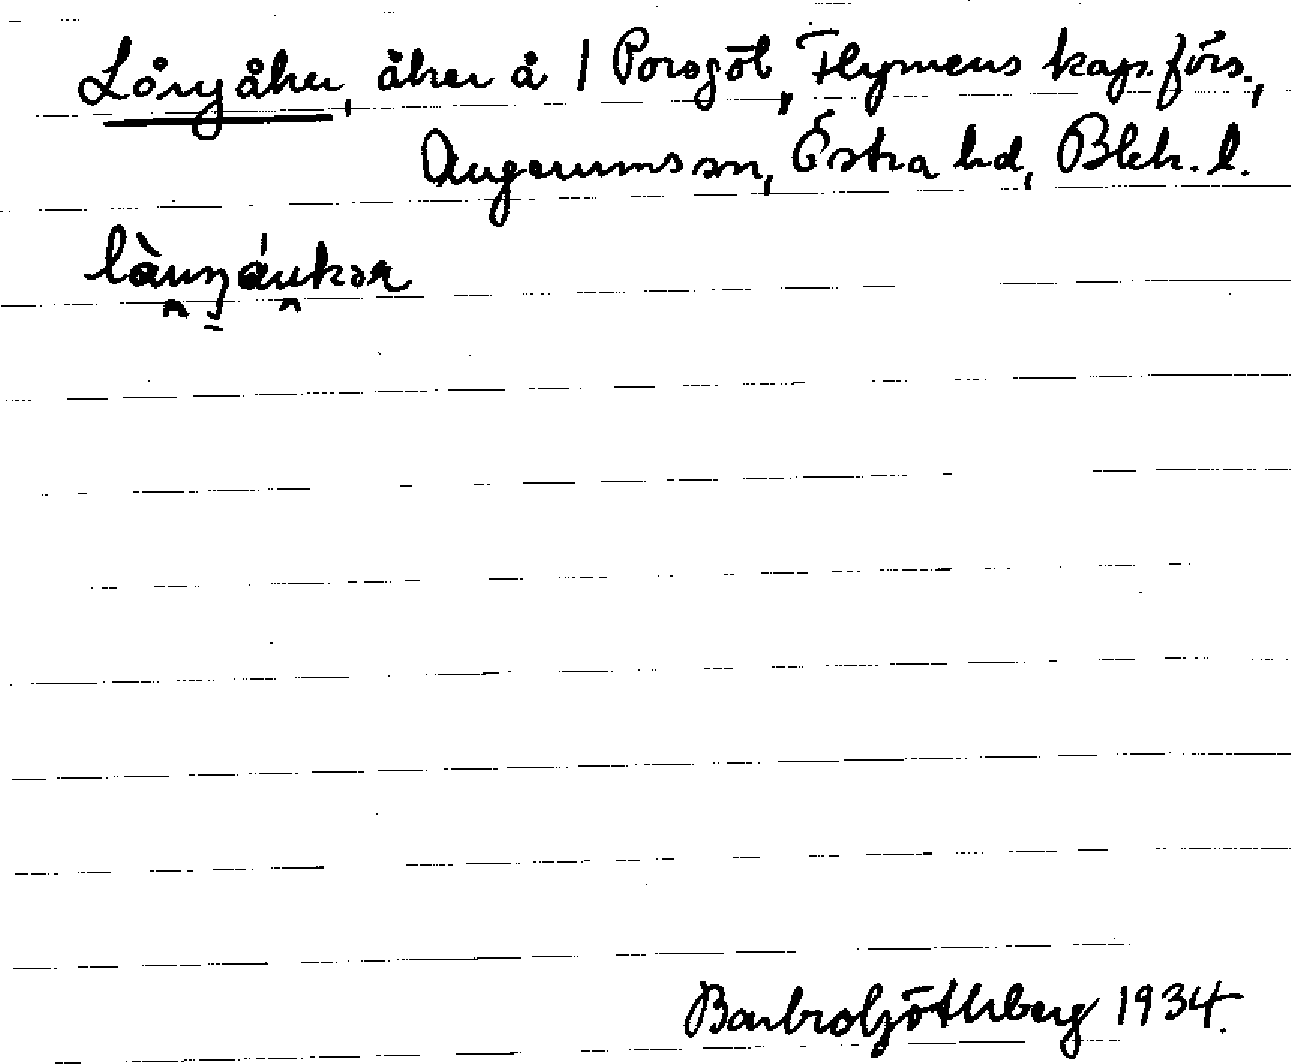 Långåker, åker å 1 Porsgöl, Flymens kap.förs.,
Augerums sn, Östra hd, Blek. l.
Barbro Göthberg 1934.